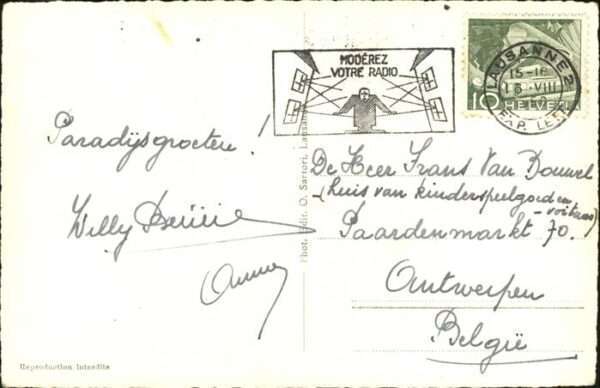 MODÉREZ
VOTRE RADIO
LAUSANNE 2
15-16
VIII
EXP. LET
10 HELVETIA
Paradijsgroeten!
Willy
De Heer Frans Van Bouwel
(huis van kinderspeelgoed en
-voituren)
Paardenmarkt 70.
Antwerpen
België
Phot. Edit. O. Sartori, Lausanne
Reproduction interdite